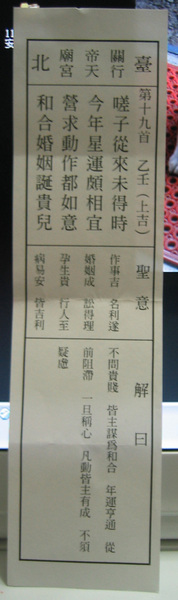 臺北
行天宮
關帝廟
第十九首 乙壬（上吉）
嗟子從來未得時
今年星運頗相宜
營求動作都如意
和合婚姻誕貴兒
聖意
作事吉 名利遂
婚姻成 訟得理
孕生貴 行人至
病易安 皆吉利
解曰
不問貴賤 皆主謀為和合 年運亨通 從
前阻滯 一旦稱心 凡動皆主有成 不須
疑慮